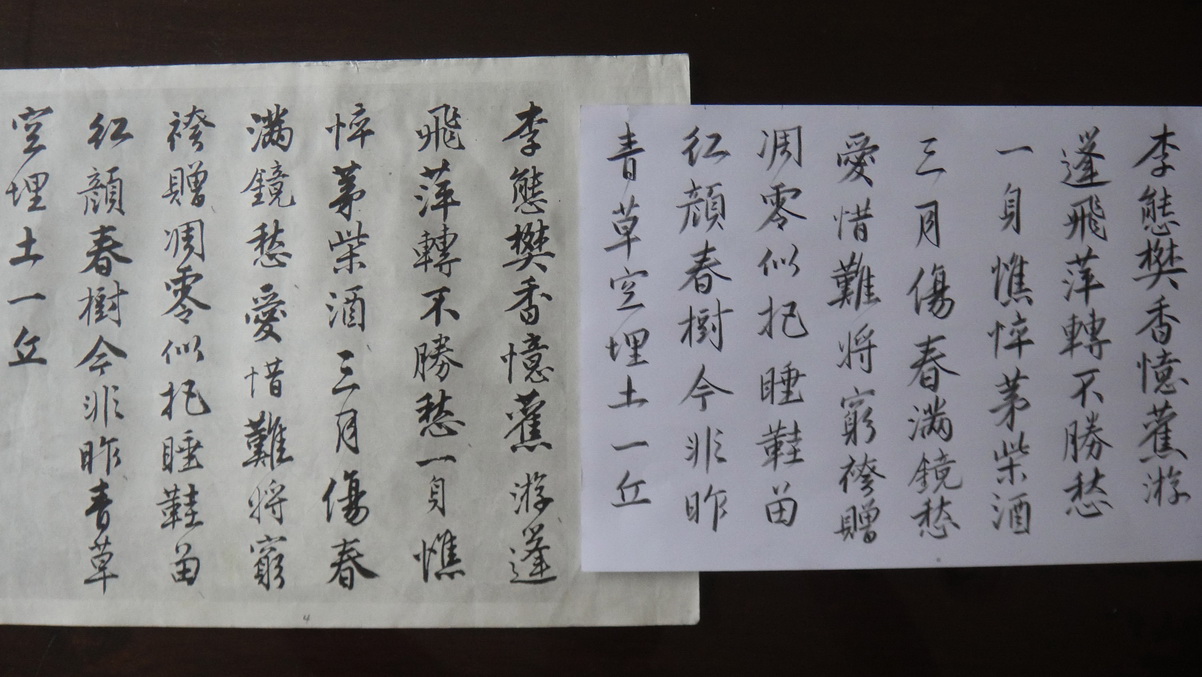 李態樊香憶舊游
蓬飛萍轉不勝愁
一身憔悴茅柴酒
三月傷春滿鏡愁
愛惜難將窮袴贈
凋零似把睡鞋留
紅顔春樹今非昨
青草空埋土一丘
李態樊香憶舊游蓬
飛萍轉不勝愁一身憔
悴茅柴酒三月傷春
滿鏡愁愛惜難將窮
袴贈凋零似把睡鞋留
紅顔春樹今非昨青草
空埋土一丘
4